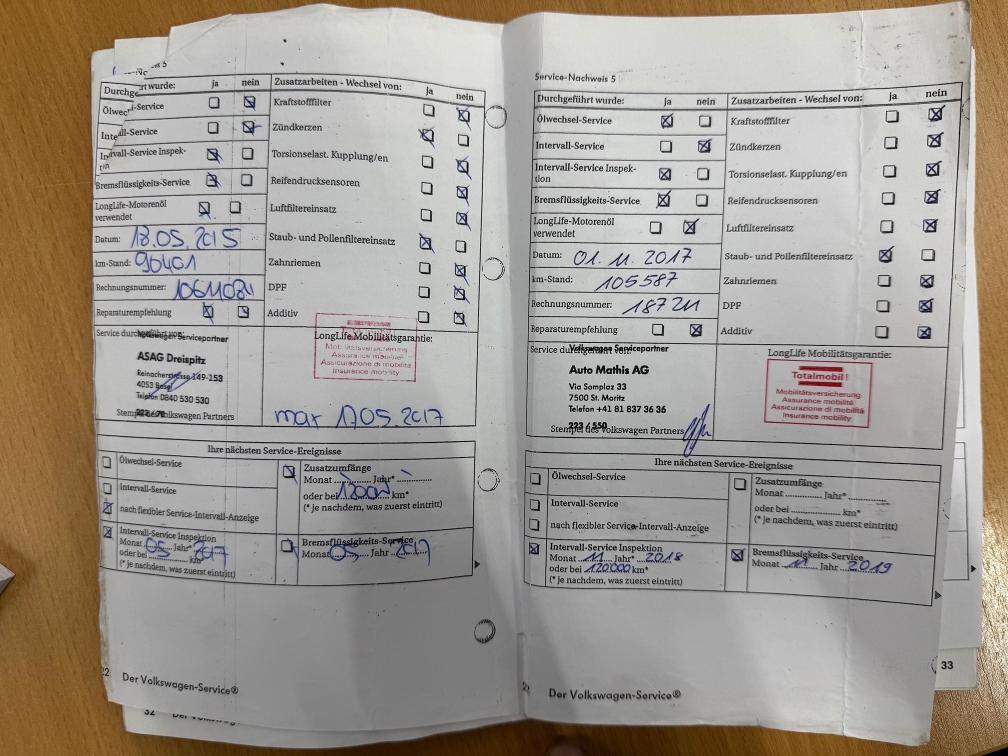 Durchge rt wurde: ja nein
Zusatzarbeiten - Wechsel von: ja nein
Ölwec -Service
Kraftstofffilter
Inte all-Service
Zündkerzen
Intervall-Service Inspek-
Torsionselast. Kupplung/en
Bremsflüssigkeits-Service
Reifendrucksensoren
LongLife-Motorenöl
verwendet
Luftfiltereinsatz
Datum: 18.05.2015
Staub- und Pollenfiltereinsatz
km-Stand: 90401
Zahnriemen
Rechnungsnummer:
DPF
Reparaturempfehlung
Additiv
Service durchgeführt von:
Volkswagen Servicepartner
ASAG Dreispitz
Reinacherstrasse 149-153
4053 Basel
Telefon 0840 530 530
Stempel des Volkswagen Partners
LongLife Mobilitätsgarantie:
Mobilitätsversicherung
Assurance mobilité
Assicurazione di mobilità
Insurance mobility
max 17.05.2017
Ihre nächsten Service-Ereignisse
Ölwechsel-Service
Intervall-Service
nach flexibler Service-Intervall-Anzeige
Zusatzumfänge
Monat Jahr*
oder bei km*
(* je nachdem, was zuerst eintritt)
Intervall-Service Inspektion
Monat 05 Jahr* 2017
oder bei km*
(* je nachdem, was zuerst eintritt)
Bremsflüssigkeits-Service
Monat 05 Jahr 2017
Der Volkswagen-Service®
32
Service-Nachweis 5
Durchgeführt wurde: ja nein
Zusatzarbeiten - Wechsel von: ja nein
Ölwechsel-Service
Kraftstofffilter
Intervall-Service
Zündkerzen
Intervall-Service Inspek-
tion
Torsionselast. Kupplung/en
Bremsflüssigkeits-Service
Reifendrucksensoren
LongLife-Motorenöl
verwendet
Luftfiltereinsatz
Datum: 01.11.2017
Staub- und Pollenfiltereinsatz
km-Stand: 105587
Zahnriemen
Rechnungsnummer: 18721
DPF
Reparaturempfehlung
Additiv
Service durchgeführt von:
Volkswagen Servicepartner
Auto Mathis AG
Via Somplaz 33
7500 St. Moritz
Telefon +41 81 837 36 36
223 / 550
Stempel des Volkswagen Partners
LongLife Mobilitätsgarantie:
Totalmobil!
Mobilitätsversicherung
Assurance mobilité
Assicurazione di mobilità
Insurance mobility
Ihre nächsten Service-Ereignisse
Ölwechsel-Service
Intervall-Service
nach flexibler Service-Intervall-Anzeige
Zusatzumfänge
Monat Jahr*
oder bei km*
(* je nachdem, was zuerst eintritt)
Intervall-Service Inspektion
Monat 11 Jahr* 2018
oder bei 120000 km*
(* je nachdem, was zuerst eintritt)
Bremsflüssigkeits-Service
Monat 11 Jahr 2019
Der Volkswagen-Service®
33